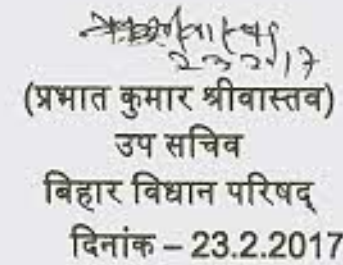 23217
(प्रभात कुमार श्रीवास्तव)
उप सचिव
बिहार विधान परिषद्
दिनांक – 23.2.2017